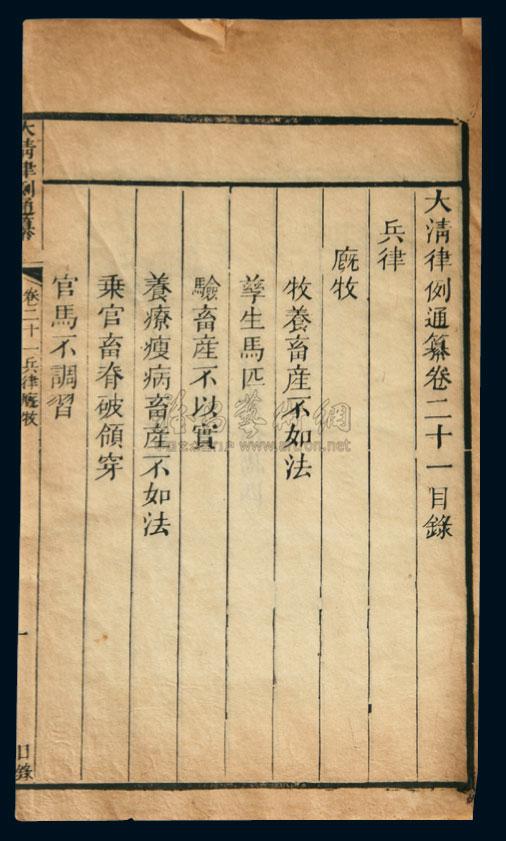 大清律例通纂卷二十一目錄
兵律
廐牧
牧養畜産不如法
孳生馬匹
驗畜産不以實
養療瘦病畜産不如法
乘官畜脊破領穿
官馬不調習
大清律例通纂
卷二十一兵律廐牧
一
目錄